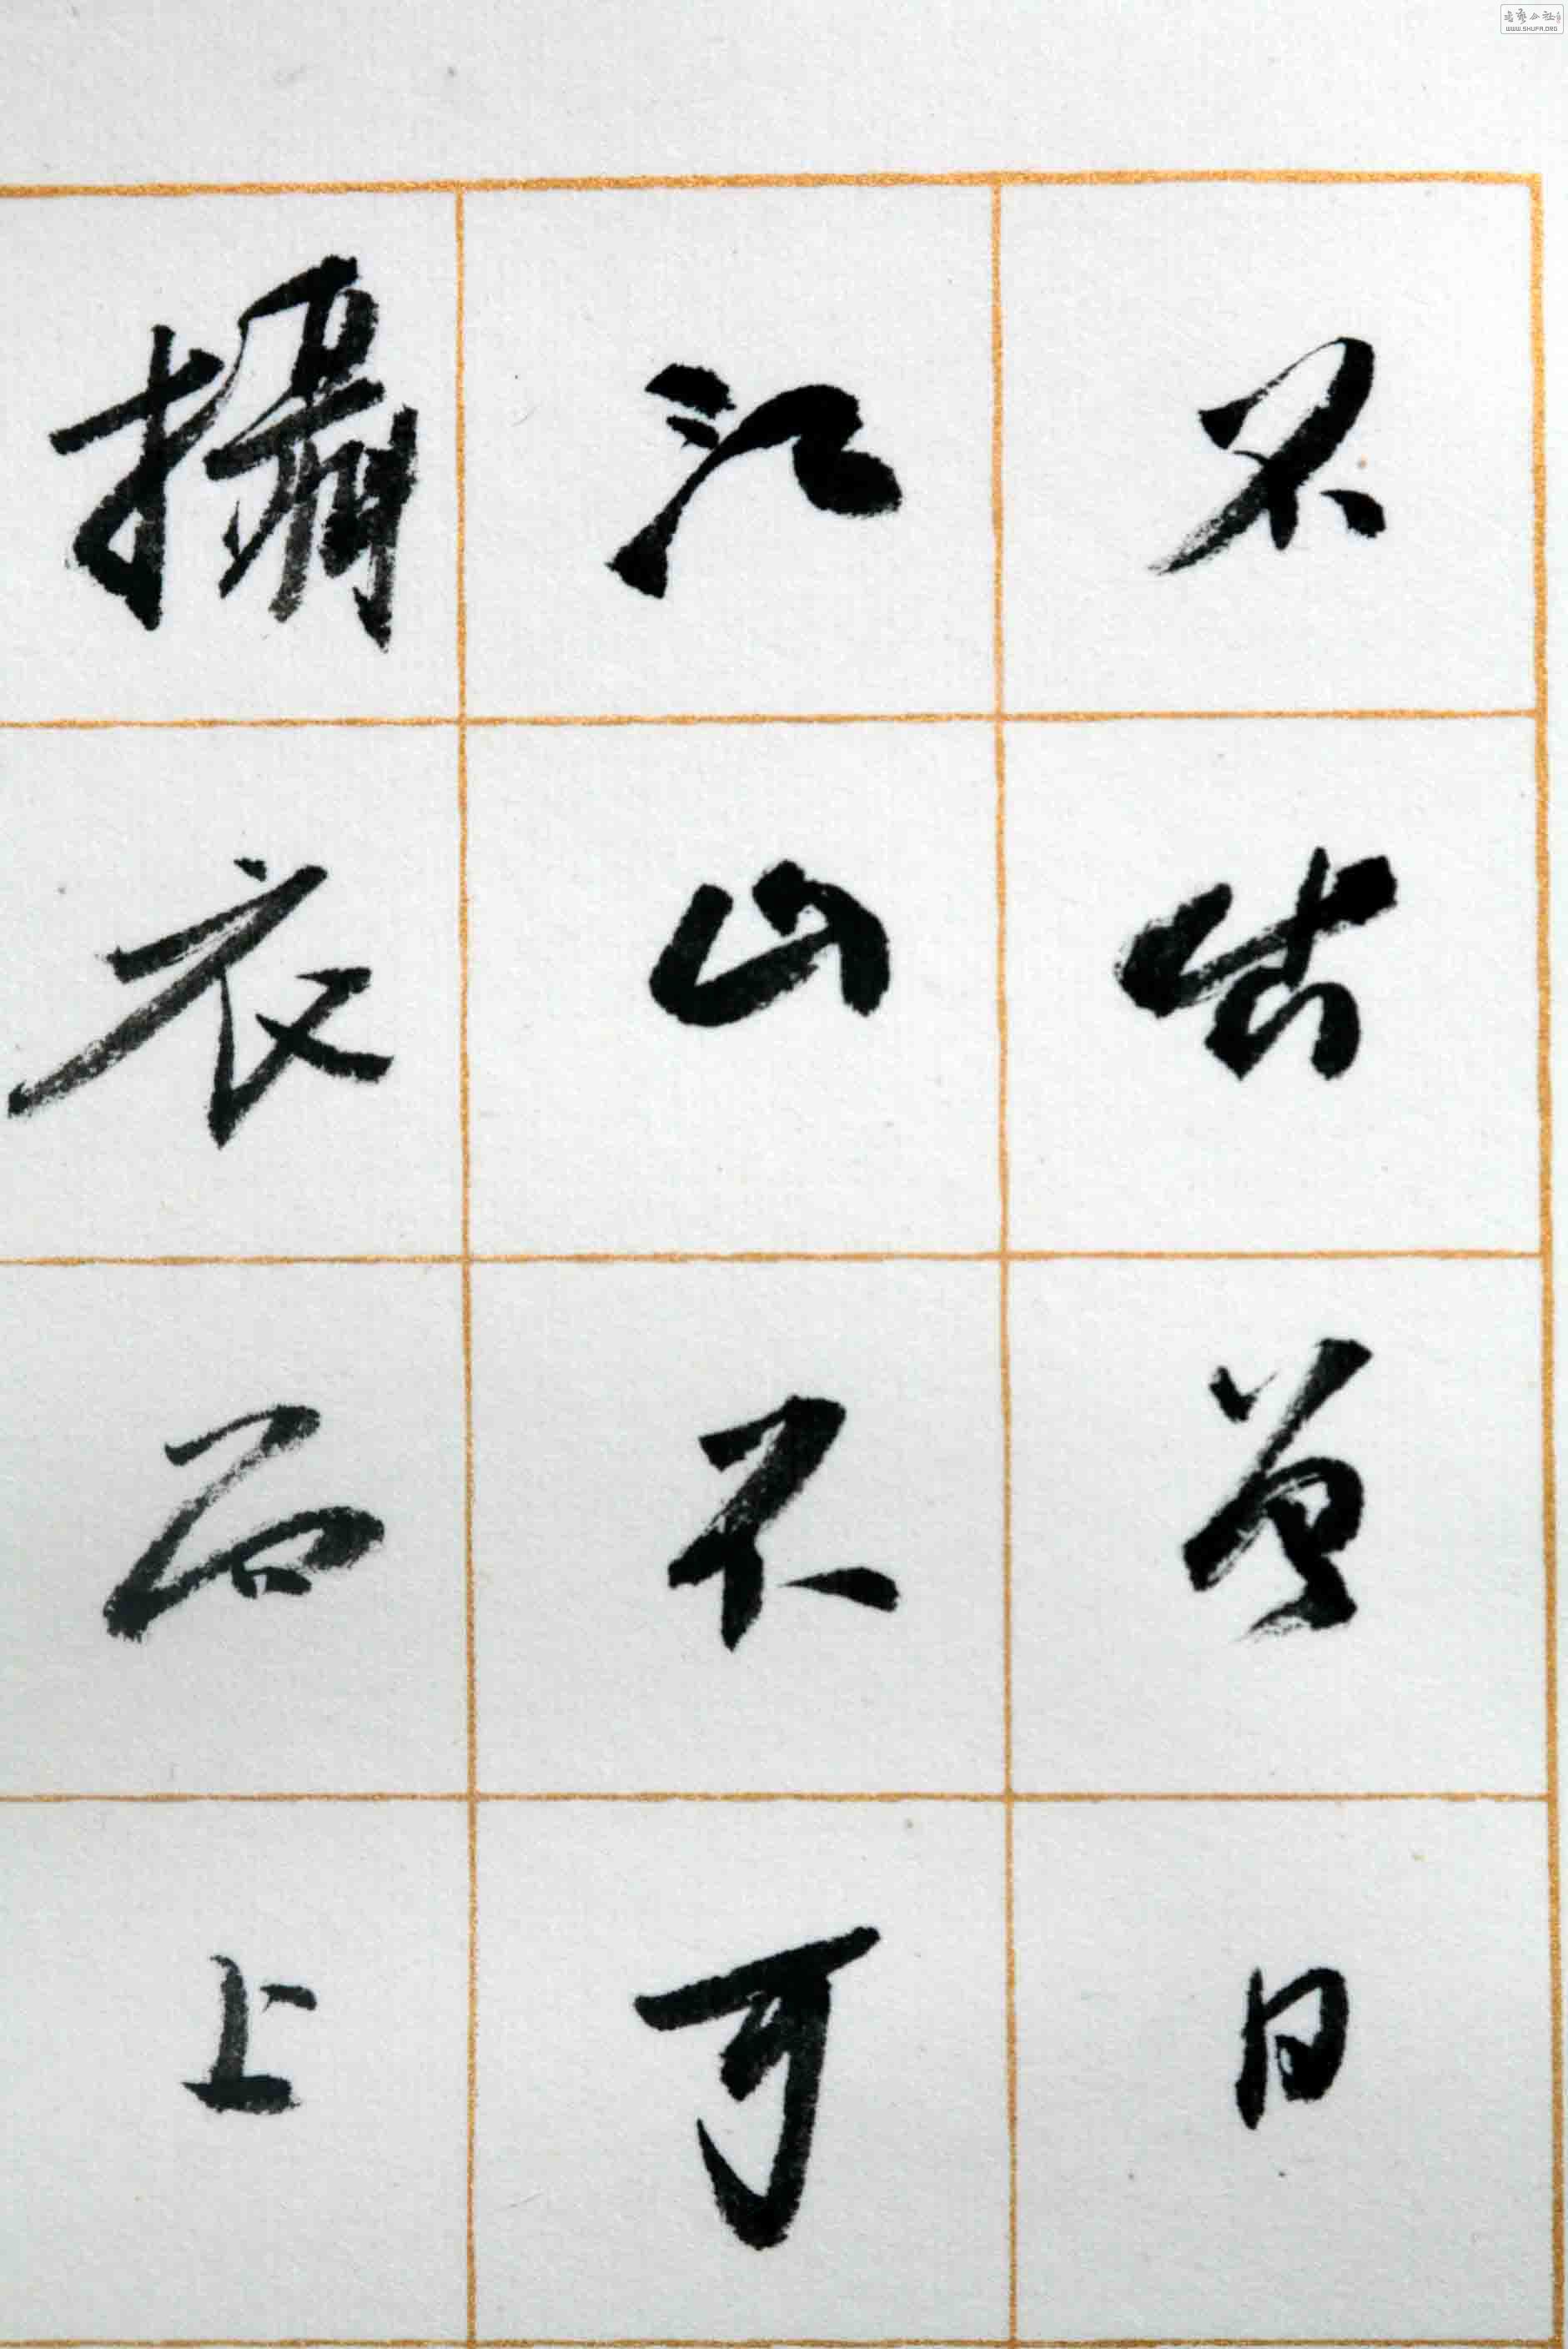 石出曾日
江山不可
攝衣而上
书艺公社
WWW.SHUFA.ORG